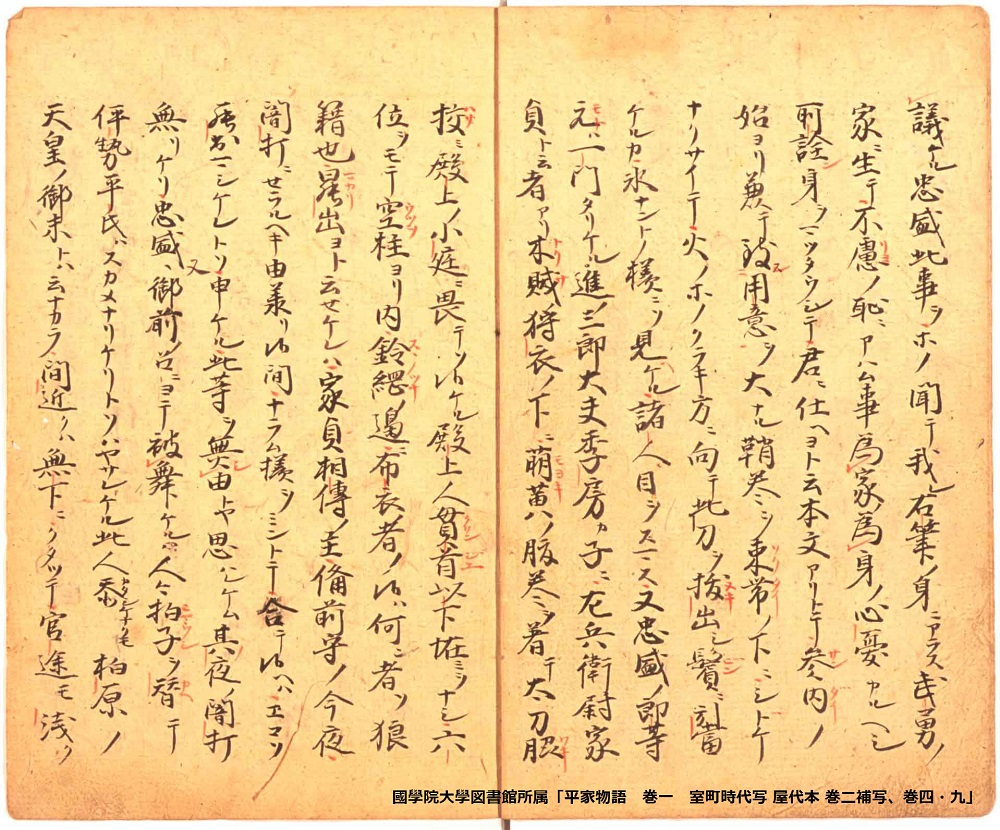 議ケル忠盛此事ヲホノ聞テ我右筆ノ身ニアラス武勇ノ
家ニ生テ不慮ノ恥ニアハム事為家為身ノ心憂カルヘシ
所詮身ヲマツタウシテ君ニ仕ヘヨト云本文アリトテ参内ノ
始ヨリ兼テ致用意ヲ大ナル鞘巻ヲ束帯ノ下ニシトケ
ナリサイテ火ノホノクラキ方ニ向テ此刀ヲ抜出シ鬢ニ引當
ケルカ氷ナントノ様ニソ見ケル諸人目ヲスマス又忠盛ノ郎等
元ハ一門タリケル進ノ三郎大夫季房カ子ニ左兵衛尉家
貞ト云者アリ木賊ノ狩衣ノ下ニ萌黄ノ腹巻ヲ着テ太刀脇
挟ミ殿上ノ小庭ニ畏テソ候ケル殿上人貫首以下恠ミヲナシ六
位ヲモテ空柱ヨリ内鈴綱邊ニ布衣者ノ候ハ何者ソ狼
籍也罷出ヨト云セケレハ家貞相傳ノ主備前守ノ今夜
闇打ニセラルヘキ由承リ候間ナラム様ヲミントテ合テ候ヘハエコソ
罷出マシケレトソ申ケル此等ヲ無由トヤ思ハレケム其夜ノ闇打
無リケリ忠盛又御前ノ召ニヨテ被舞ケルニ人々拍子ヲ替テ
伊勢平氏ハスカメナリケリトソハヤサレケル此人忝モ柏原ノ
天皇ノ御末トハ云ナカラ間近クハ無下ニクタツテ官途モ浅ク
國學院大學図書館所属「平家物語　巻一　室町時代写 屋代本 巻二補写、巻四・九」